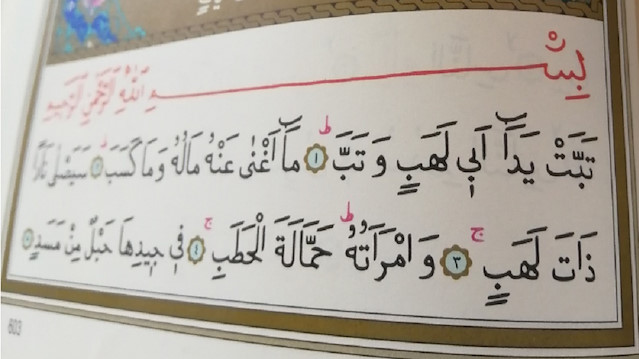 بِسْمِ اللهِ الرَّحْمٰنِ الرَّحِيمِ
تَبَّتْ يَدَٓا اَبٖي لَهَبٍ وَ تَبَّ ط ١ مَٓا اَغْنٰى عَنْهُ مَالُهُ وَمَا كَسَبَ ط ٢ سَيَصْلٰى نَارًا
ذَاتَ لَهَبٍ ج ٣ وَ امْرَاَتُهُ ط حَمَّالَةَ الْحَطَبِ ج ٤ فٖي جٖيدِهَا حَبْلٌ مِنْ مَسَدٍ ٥
603